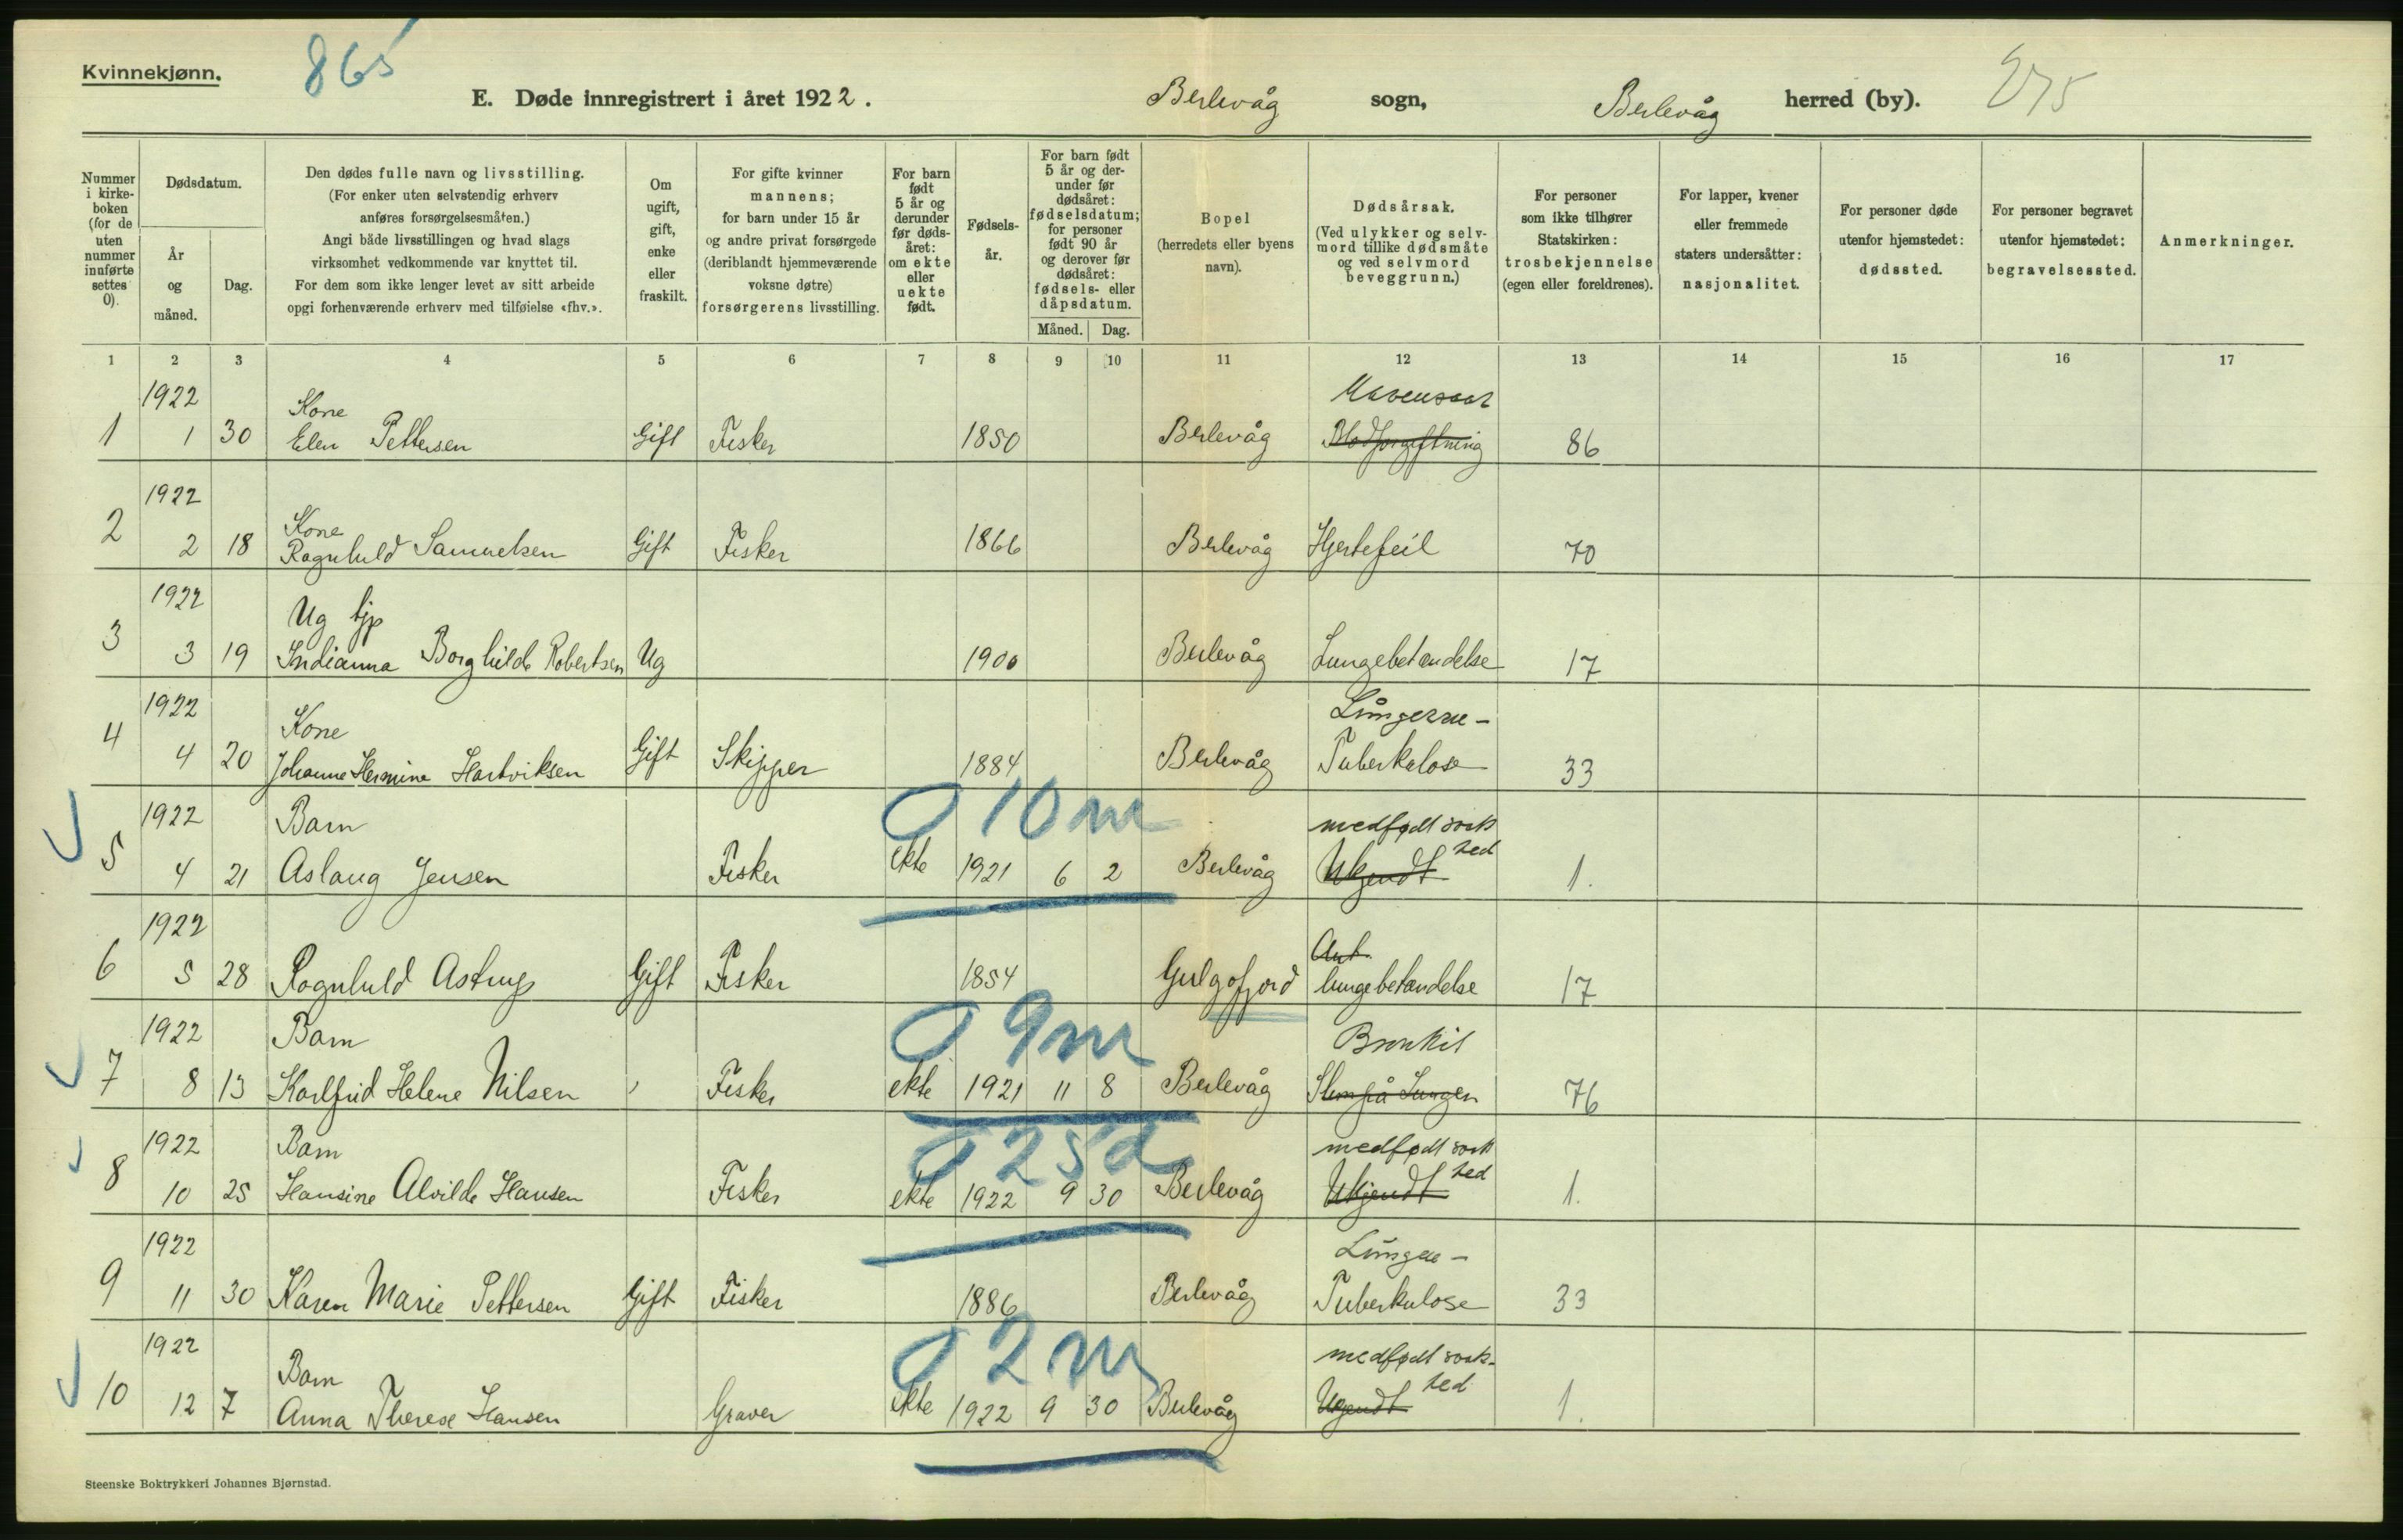 Kvinnekjønn.
865
E. Døde innregistrert i året 1922.
Berlevåg sogn,
Berlevåg herred (by).
275
Nummer i kirkeboken (for de uten nummer innførte settes 0).
Dødsdatum.
År og måned.
Dag.
Den dødes fulle navn og livsstilling.
(For enker uten selvstendig erhverv
anføres forsørgelsesmåten.)
Angi både livsstillingen og hvad slags
virksomhet vedkommende var knyttet til.
For dem som ikke lenger levet av sitt arbeide
opgi forhenværende erhverv med tilføielse «fhv.».
Om ugift, gift, enke eller fraskilt.
For gifte kvinner
mannens;
for barn under 15 år
og andre privat forsørgede
(deriblandt hjemmeværende
voksne døtre)
forsørgerens livsstilling.
For barn født 5 år og derunder før dødsåret: om ekte eller uekte født.
Fødselsår.
For barn født 5 år og derunder før dødsåret: fødselsdatum; for personer født 90 år og derover før dødsåret: fødsels- eller dåpsdatum.
Måned. Dag.
Bopel
(herredets eller byens navn).
Dødsårsak.
(Ved ulykker og selvmord tillike dødsmåte og ved selvmord beveggrunn.)
For personer som ikke tilhører Statskirken: trosbekjennelse (egen eller foreldrenes).
For lapper, kvener eller fremmede staters undersåtter: nasjonalitet.
For personer døde utenfor hjemstedet: dødssted.
For personer begravet utenfor hjemstedet: begravelsessted.
Anmerkninger.
1 2 3 4 5 6 7 8 9 10 11 12 13 14 15 16 17
1922 Kone Mavesaar
1 1 30 Elen Pettersen Gift Fisker 1850 Berlevåg Blodforgiftning 86
1922 Kone
2 2 18 Ragnhild Samuelsen Gift Fisker 1866 Berlevåg Hjertefeil 70
1922 Ug tjp
3 3 19 Indianna Borghilde Robertsen Ug 1900 Berlevåg Lungebetændelse 17
1922 Kone
4 4 20 Johanne Hermine Hartviksen Gift Skipper 1884 Berlevåg Tuberkulose 33
0 10 m
1922 Barn medfødt svak
hed
5 4 21 Aslaug Jensen Fisker ekte 1921 6 2 Berlevåg Ukjendt 1.
1922
6 5 28 Ragnhild Astrup Gift Fisker 1854 Gulgofjord lungebetændelse 17
0 9 m
1922 Barn Bronkit
7 8 13 Karlfrid Helene Nilsen Fisker ekte 1921 11 8 Berlevåg Slem på Lungen 76
0 25 d
1922 Barn medfødt svak
hed
8 10 25 Hansine Alvilde Hansen Fisker ekte 1922 9 30 Berlevåg Ukjendt 1.
1922 Lunge-
9 11 30 Karen Marie Pettersen Gift Fisker 1886 Berlevåg Tuberkulose 33
0 2 m
1922 Barn medfødt svak-
hed
10 12 7 Anna Therese Hansen Graver ekte 1922 9 30 Berlevåg Ukjendt 1.
Steenske Boktrykkeri Johannes Bjørnstad.